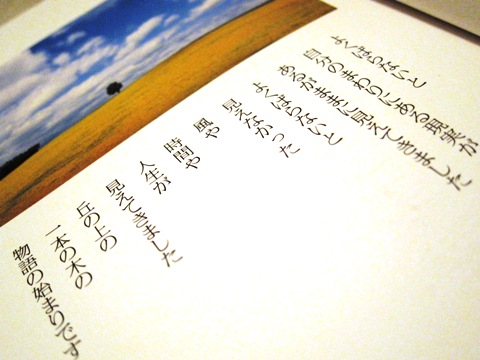 よくばらないと
自分のまわりにある現実が
あるがままに見えてきました
よくばらないと
見えなかった
風や
時間や
人生が
見えてきました
丘の上の
一本の木の
物語の始まりです